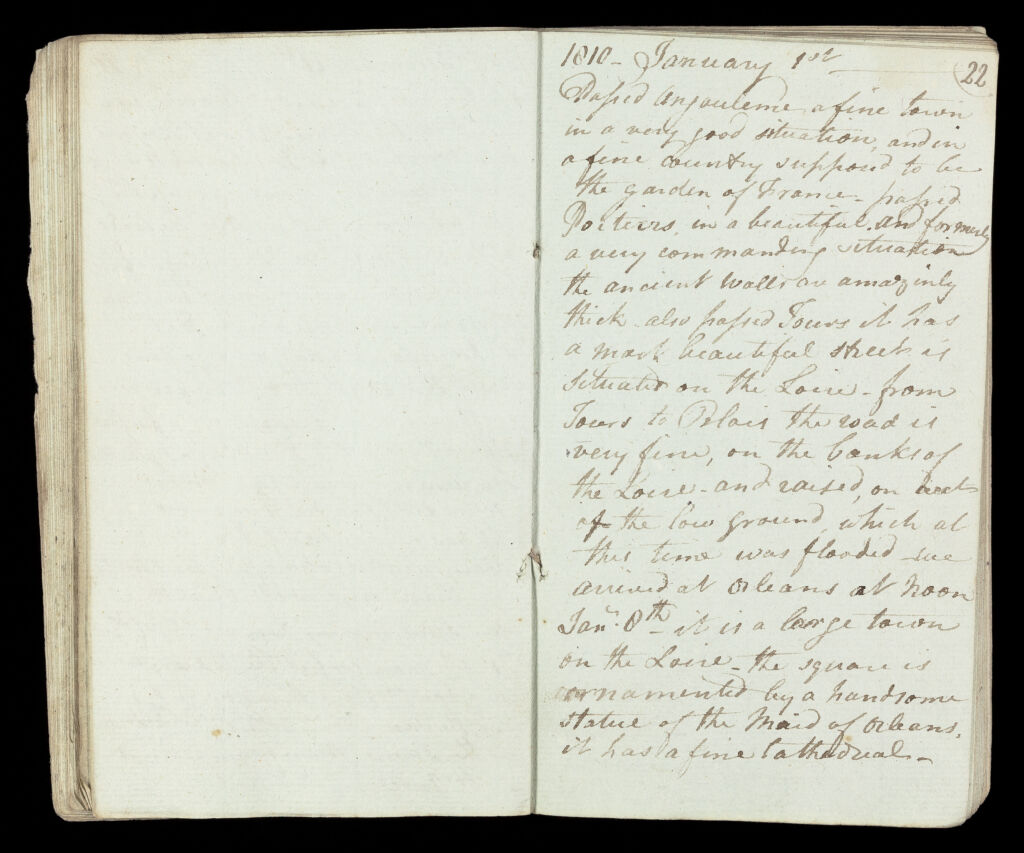 1810 - January 1st
22
Passed Angouleme a fine town
in a very good situation, and in
a fine country supposd to be
the garden of France - passed
Poitiers, in a beautiful and formerly
a very commanding situation
the ancient walls are amazinly
thick also passed Tours it has
a most beautiful street is
situated on the Loire - from
Tours to Blois the road is
very fine, on the banks of
the Loire - and raised, on acct
of the low ground, which at
this time was flooded - we
arrived at Orleans at Noon
Jany. 8th - it is a large town
on the Loire - the square is
ornamented by a handsome
statue of the Maid of Orleans,
it has a fine Cathedral -